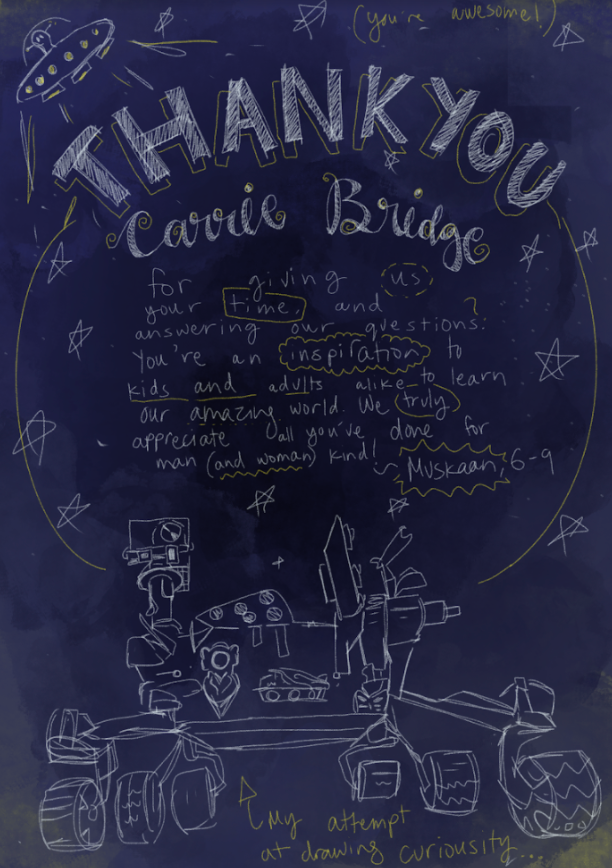 (you're awesome!)
THANK YOU
Carrie Bridge
for giving us
your time, and
answering our questions.
You're an inspiration to
kids and adults alike to learn
our amazing world. We truly
appreciate all you've done for
man (and woman) kind!
~ Muskaan, 6-9
My attempt
at drawing curiousity...